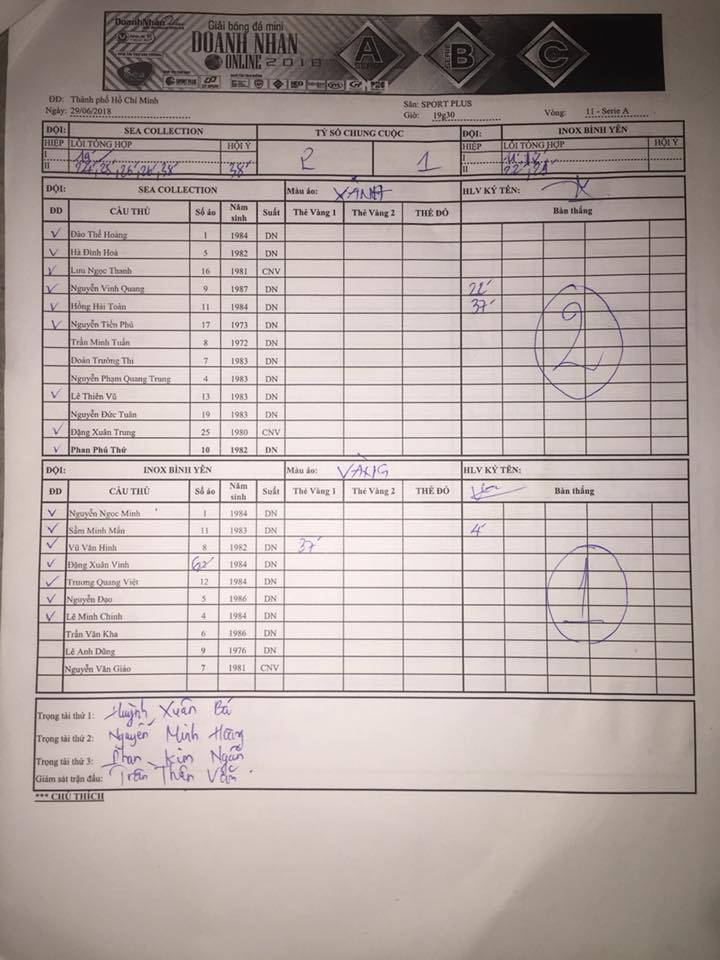 DoanhNhan
Giải bóng đá mini
DOANH NHAN
ONLINE 2018
A SERIE
SERIE B
C
ĐĐ: Thành phố Hồ Chí Minh
Sân: SPORT PLUS
Ngày: 29/06/2018 Giờ: 19g30 Vòng: 11 - Serie A
ĐỘI: SEA COLLECTION TỶ SỐ CHUNG CUỘC ĐỘI: INOX BÌNH YÊN
HIỆP LỖI TỔNG HỢP HỘI Ý 2 1 HIỆP LỖI TỔNG HỢP HỘI Ý
I 19' I
II 38' II
ĐỘI: SEA COLLECTION Màu áo: XANH HLV KÝ TÊN:
ĐD CẦU THỦ Số áo Năm sinh Suất Thẻ Vàng 1 Thẻ Vàng 2 THẺ ĐỎ Bàn thắng
Đào Thế Hoàng 1 1984 DN
Hà Đình Hoà 5 1982 DN
Lưu Ngọc Thanh 16 1981 CNV
Nguyễn Vinh Quang 9 1987 DN 22'
Hồng Hải Toàn 11 1984 DN 37'
Nguyễn Tiến Phú 17 1973 DN
Trần Minh Tuấn 8 1972 DN
Đoàn Trường Thi 7 1983 DN
Nguyễn Phạm Quang Trung 4 1983 DN
Lê Thiên Vũ 13 1983 DN
Nguyễn Đức Tuân 19 1983 DN
Đặng Xuân Trung 25 1980 CNV
Phan Phú Thứ 10 1982 DN
2
ĐỘI: INOX BÌNH YÊN Màu áo: VÀNG HLV KÝ TÊN:
ĐD CẦU THỦ Số áo Năm sinh Suất Thẻ Vàng 1 Thẻ Vàng 2 THẺ ĐỎ Bàn thắng
Nguyễn Ngọc Minh 1 1984 DN
Sầm Minh Mẫn 11 1983 DN 4'
Vũ Văn Hinh 8 1982 DN 37'
Đặng Xuân Vinh 62 1984 DN
Trương Quang Việt 12 1984 DN
Nguyễn Đạo 5 1986 DN
Lê Minh Chinh 4 1984 DN
Trần Văn Kha 6 1986 DN
Lê Anh Dũng 9 1976 DN
Nguyễn Văn Giáo 7 1981 CNV
1
Trọng tài thứ 1: Huỳnh Xuân Bá
Trọng tài thứ 2: Nguyễn Minh Hoàng
Trọng tài thứ 3: Phan Kim Ngân
Giám sát trận đấu: Trần Thân
*** CHÚ THÍCH